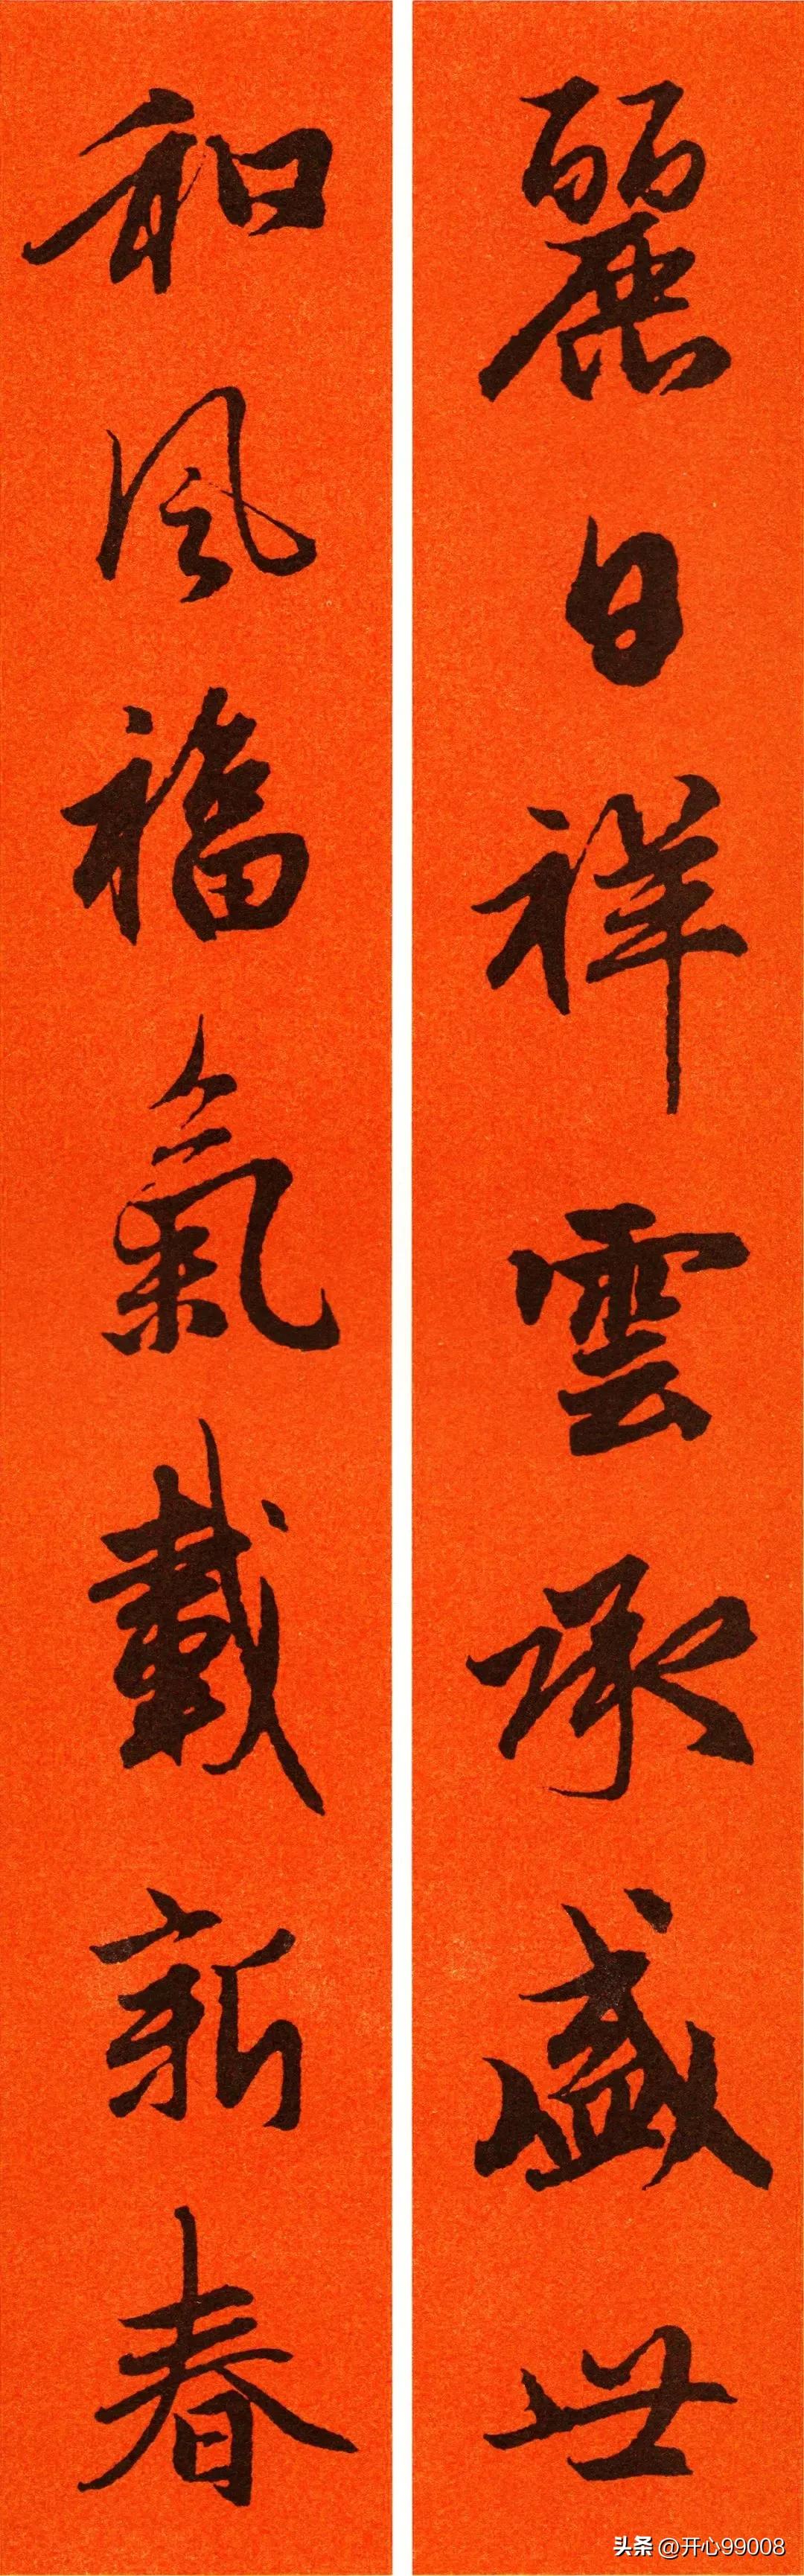 麗日祥雲承盛世
和風福氣載新春
头条 @开心99008